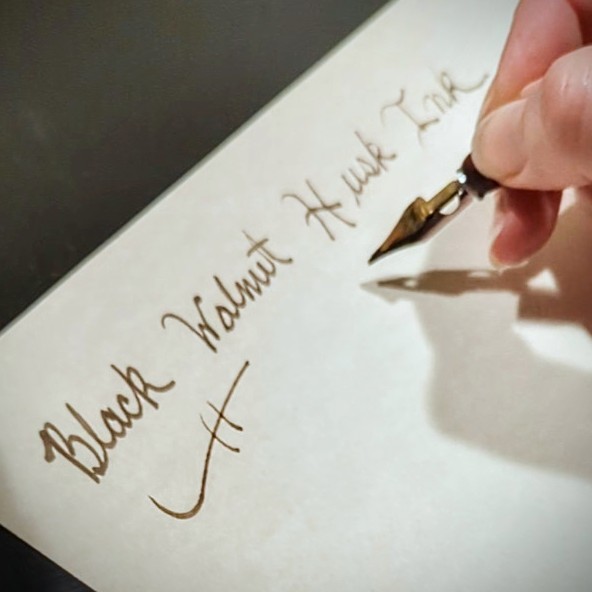 Black Walnut Husk Ink